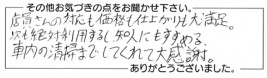 その他お気づきの点をお聞かせ下さい。
店員さんの対応も価格も仕上がりも大満足。
次も絶対利用するし知人にもすすめる。
車内の清掃までしてくれて大感謝。
ありがとうございました。